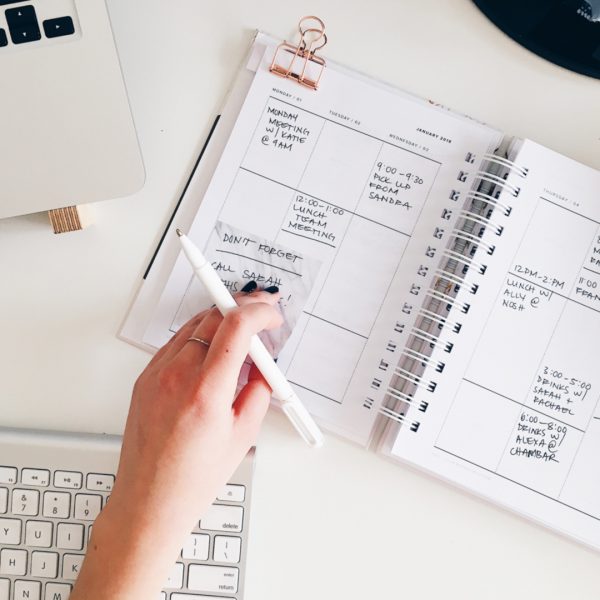 MONDAY / 01
TUESDAY / 02
WEDNESDAY / 03
JANUARY 2018
MONDAY
MEETING
W/ KATIE
@ 9AM
9:00-9:30
PICK UP
FROM
SANDRA
12:00-1:00
LUNCH
TEAM
MEETING
DON'T FORGET
CALL SARAH
THURSDAY / 04
12PM-2PM
LUNCH W/
ALLY @
NOSH
3:00-5:00
DRINKS W/
SARAH +
RACHAEL
6:00-8:00
DRINKS W/
ALEXA @
CHAMBAR
delete
return